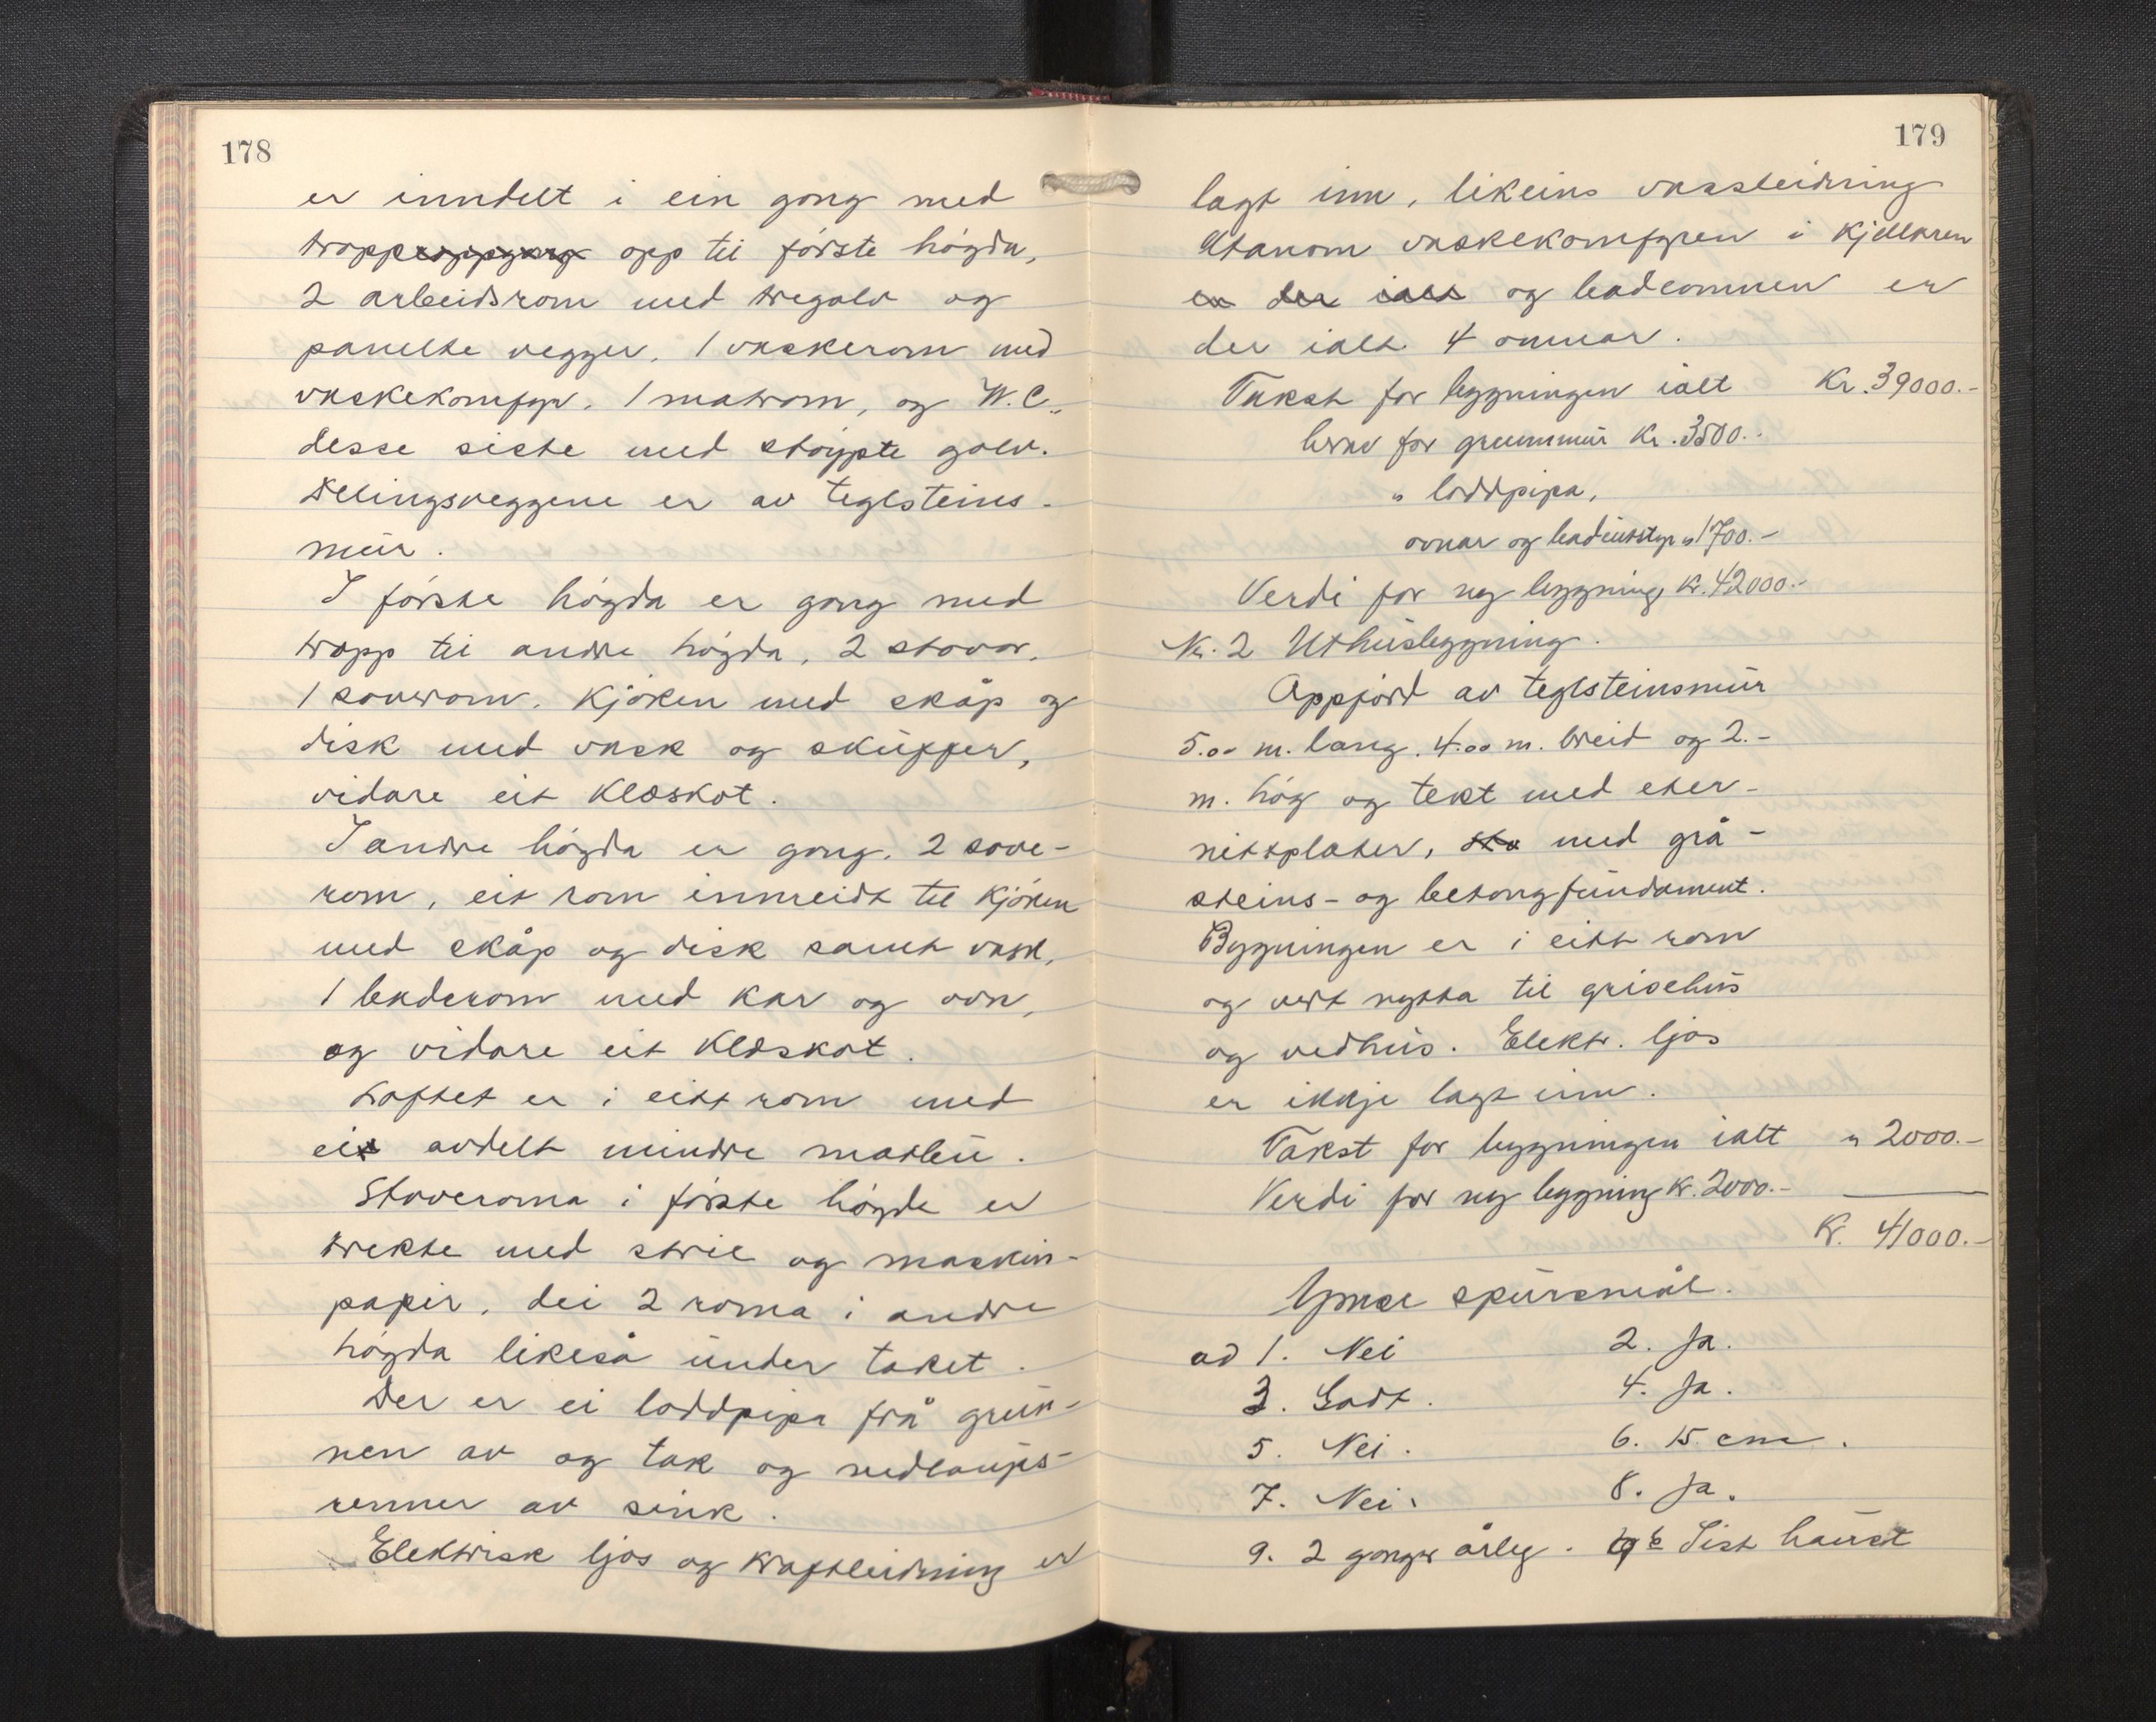 178
er inndelt i ein gong med
trapp opp til fórste högda,
2 arbeidsrom med tregolv og
panelte vegger, 1 vaskerom med
vaskekomfyr, 1 matrom, og W.C.,
desse siste med stöypte golv.
Delingsveggene er av teglsteins-
mür.
I fórste högda er gong med
trapp til andre högda, 2 stovor,
1 soverom, kjöken med skåp og
disk med vask og sküffer,
vidare eit kleskot.
I andre högda er gong, 2 sove-
rom, eit rom innreidt til kjöken
med skåp og disk samt vask,
1 baderom med kar og ovn,
og vidare eit kleskot.
Loftet er i eitt rom med
eit avdelt mindre matbu.
Stoveroma i fórste högde er
trekte med strie og maskin-
papir, dei 2 roma i andre
högda likeså ünder taket.
Der er ei loddpipa frå grün-
nen av og tak og nedlaups-
renner av sink.
Elektrisk ljos og kraftleidning er
179
lagt inn, likeins vassleidning
Utanom vaskekomfyren i kjellaren
en der ialt og badeomnen er
der ialt 4 omnar.
Takst for bygningen ialt Kr. 39000.-
herav for grunnmür Kr. 3500.-
" loddpipa,
ovnar og badeutstyr " 1700.-
Verdi for ny bygning Kr. 42000.-
Nr. 2 Uthüsbygning.
Oppfört av teglsteinsmür
5.00 m. lang, 4.00 m. breid og 2.-
m. hög og tekt med eter-
nittplater, sto med grå-
steins- og betongfündament.
Bygningen er i eitt rom
og vert nytta til grisehüs
og vedhüs. Elektr. ljos
er ikkje lagt inn.
Takst for bygningen ialt " 2000.-
Verdi for ny bygning Kr. 2000.-
Kr. 41000.-
Ymse spürsmål.
ad 1. Nei 2. Ja.
3. Godt. 4. Ja.
5. Nei. 6. 15 cm.
7. Nei. 8. Ja.
9. 2 gonger årleg. Sist haüst